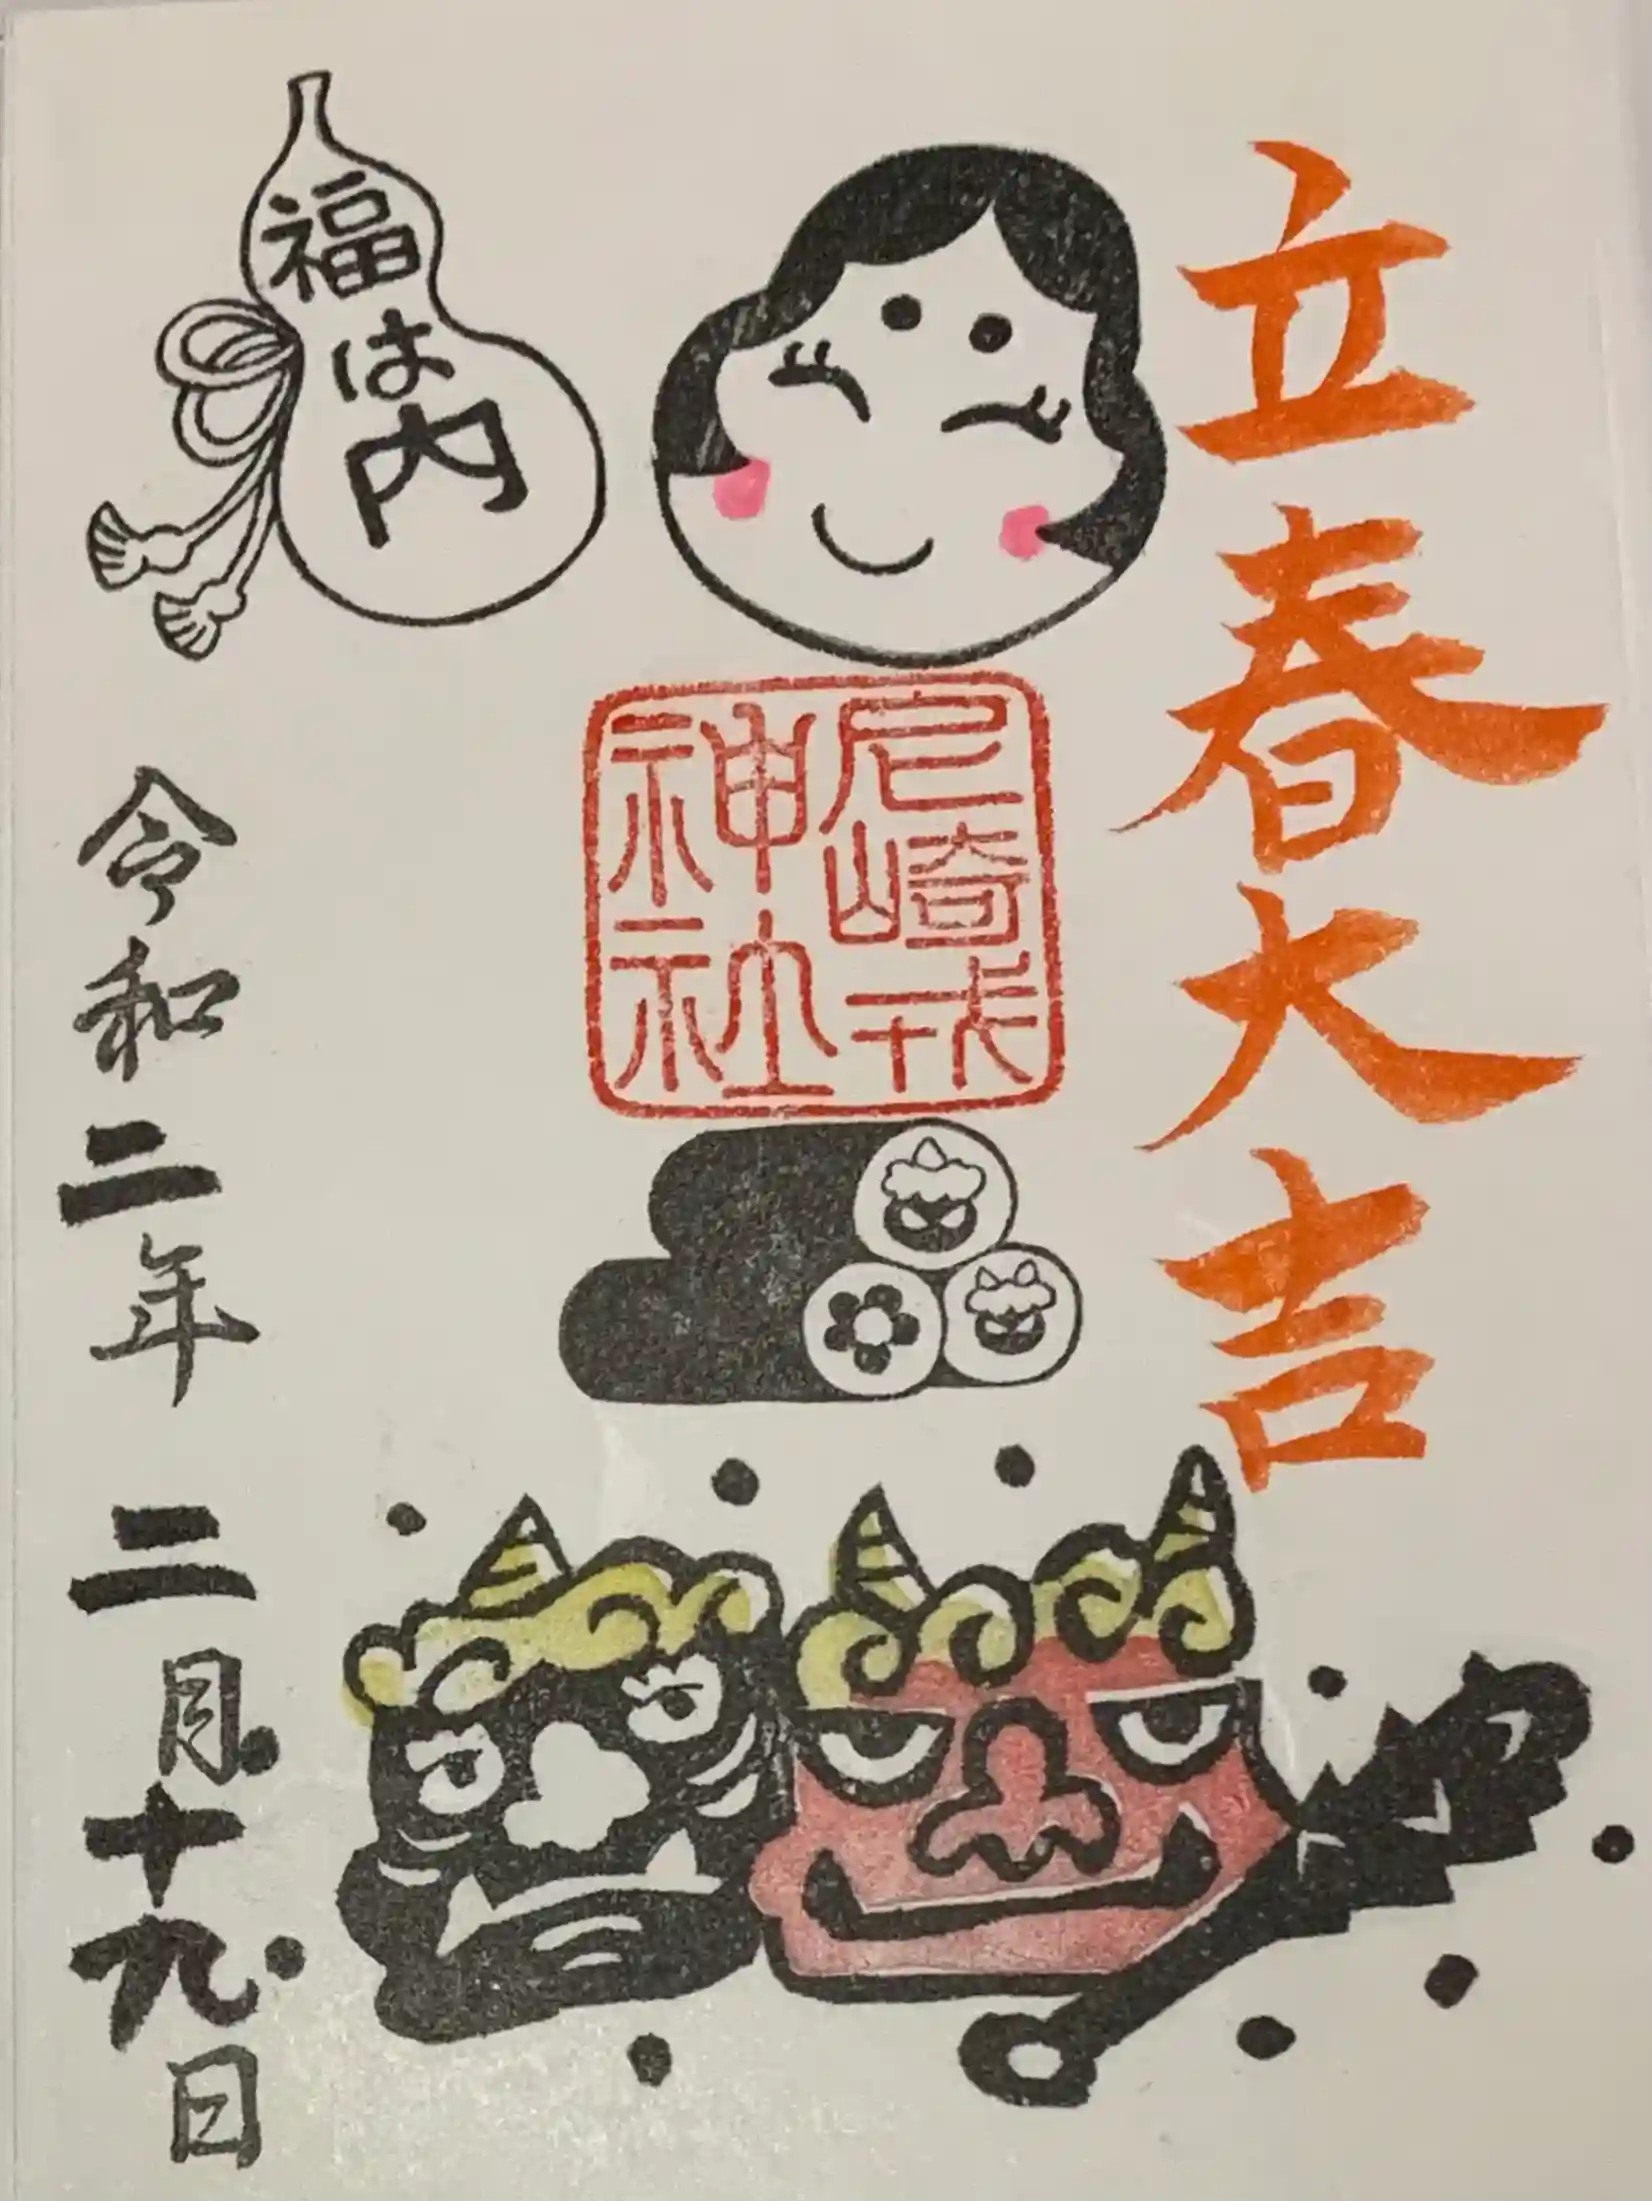 立春大吉
福は内
尼崎戎
神社
令和二年二月十九日